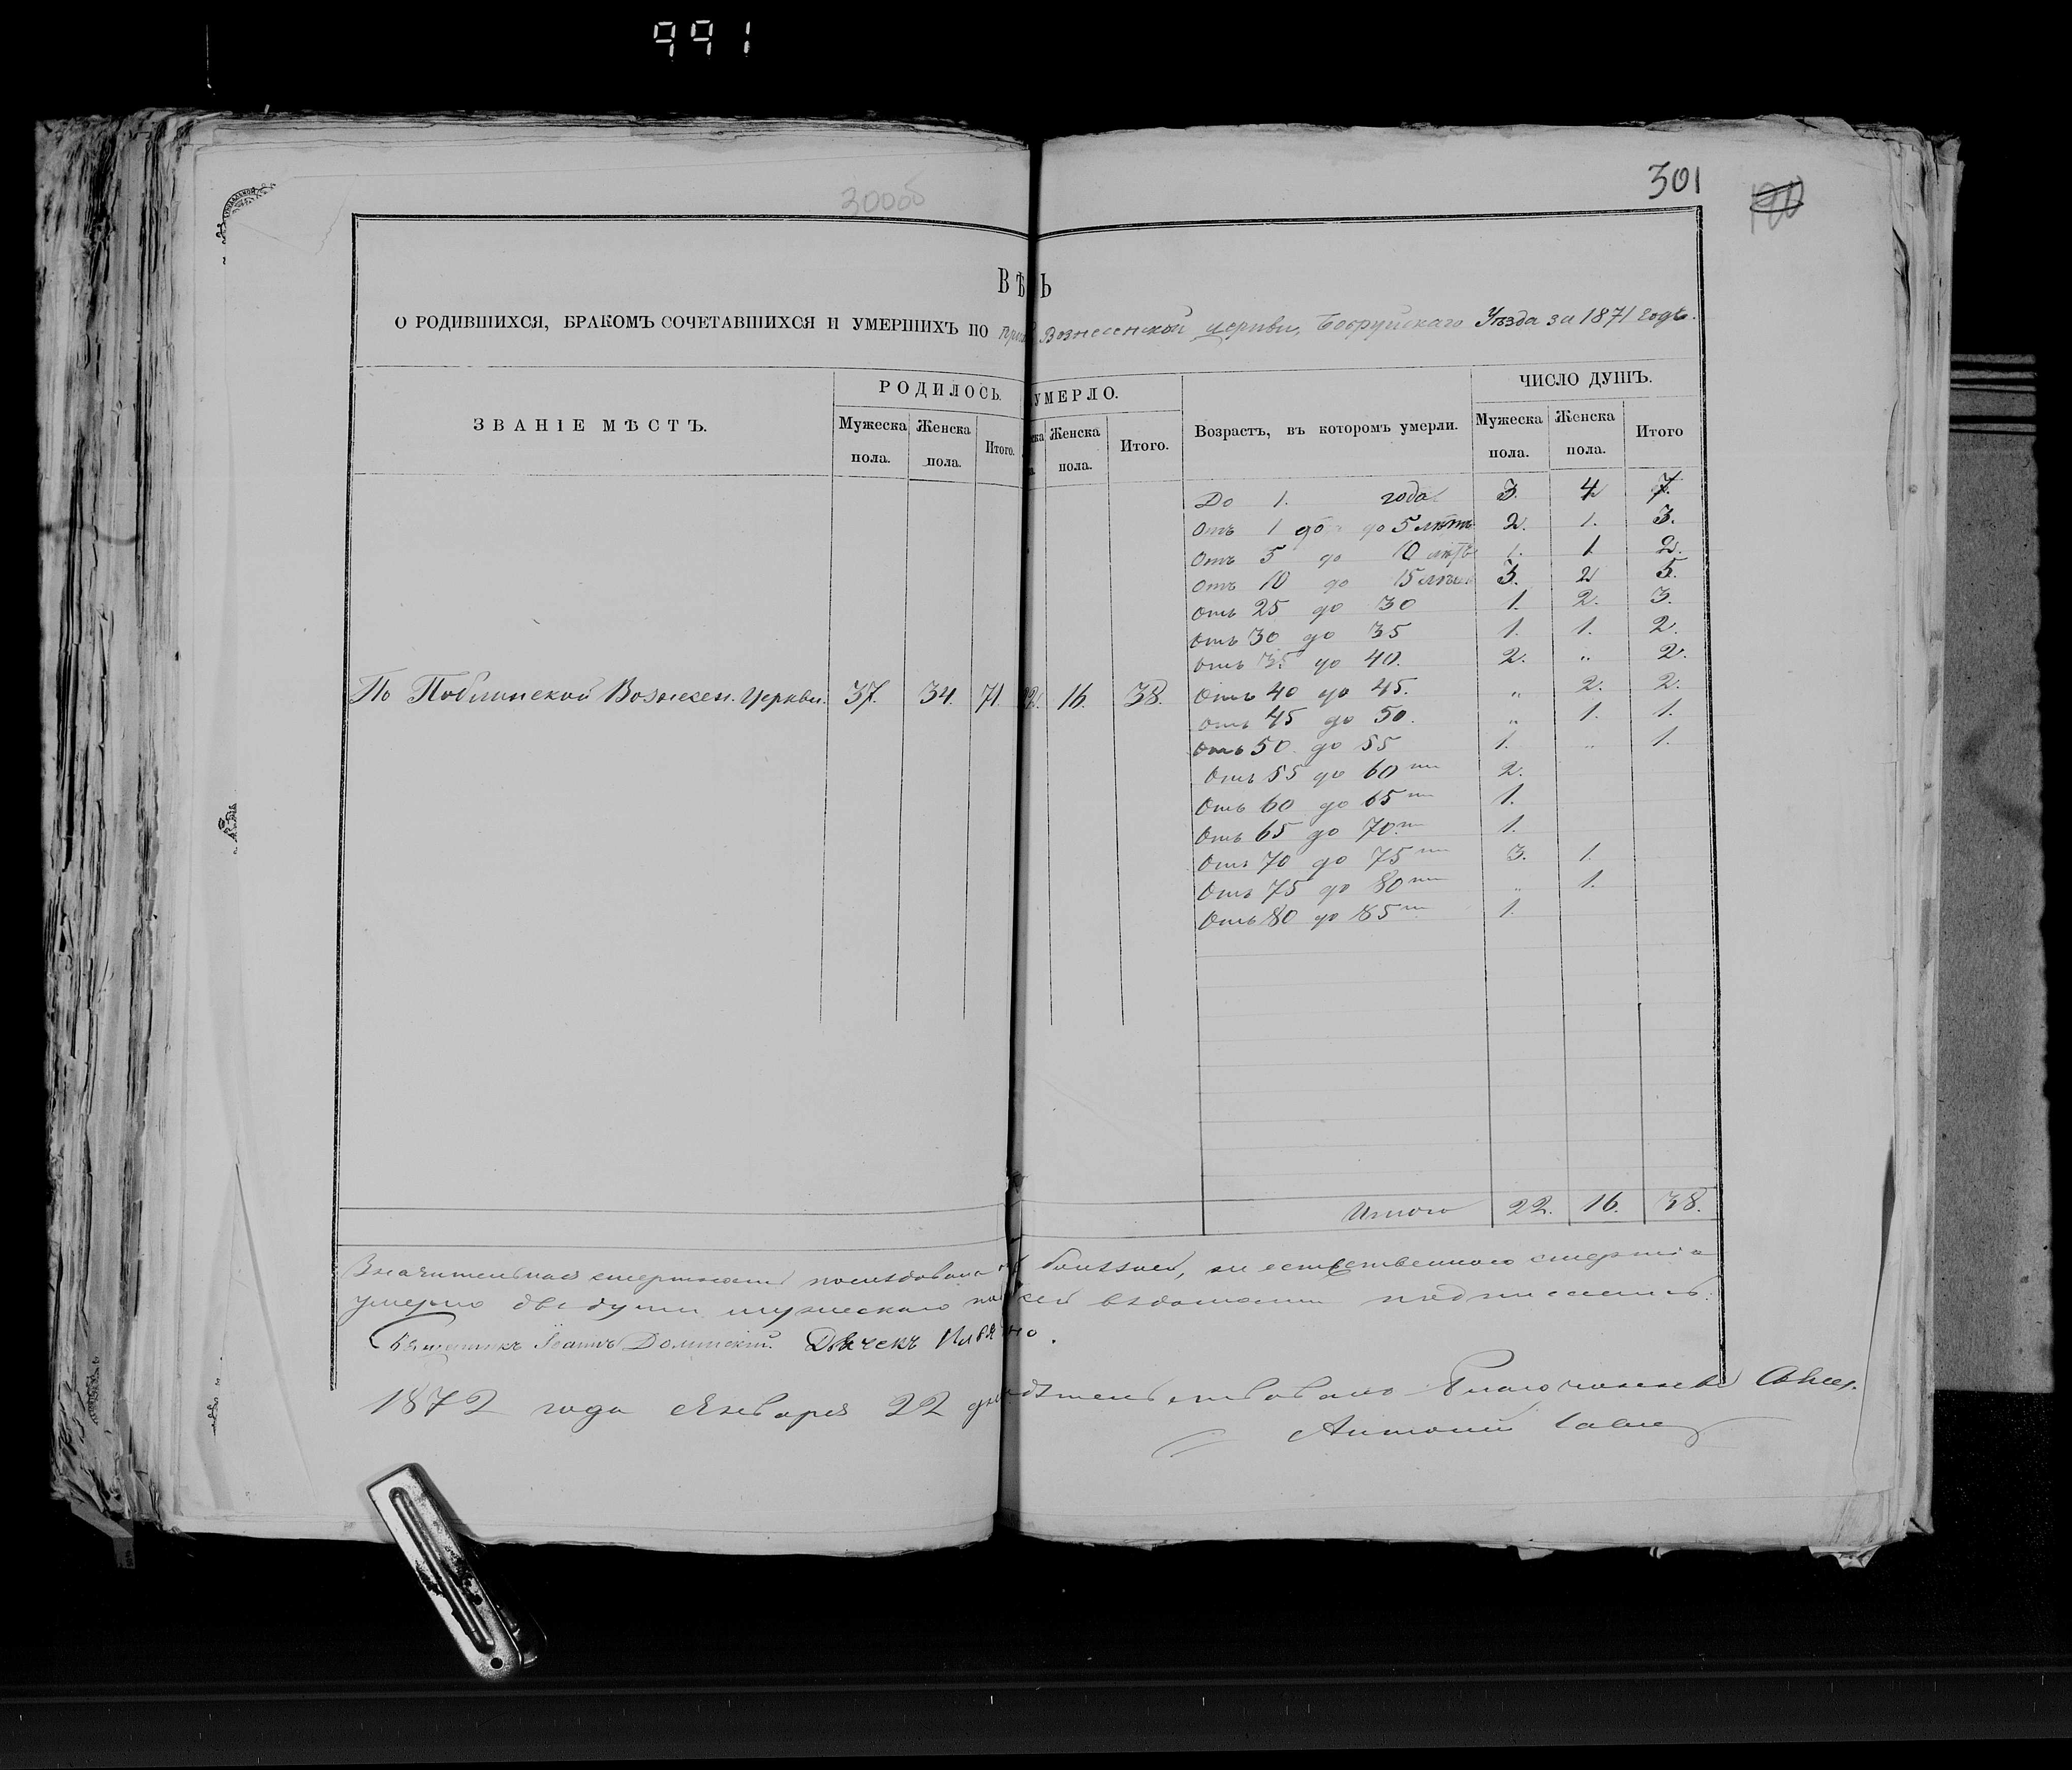 991
300об
301
ВѢ Ь
О РОДИВШИХСЯ, БРАКОМЪ СОЧЕТАВШИХСЯ И УМЕРШИХЪ ПО Вознесенской церкви, Бобруйскаго Уѣзда за 1871 годъ.
ЗВАНІЕ МѢСТЪ.
РОДИЛОСЬ.
Мужеска пола.
Женска пола.
Итого.
УМЕРЛО.
Женска пола.
Итого.
Возрастъ, въ которомъ умерли.
ЧИСЛО ДУШЪ.
Мужеска пола.
Женска пола.
Итого
По Поблинской Вознесен. Церкви. 37. 34. 71. 22. 16. 38.
До 1. года 3. 4 7.
Отъ 1 до до 5 лѣтъ 2. 1. 3.
Отъ 5 до 10 лѣтъ 1. 1 2.
Отъ 10 до 15 лѣтъ 3. 2 5.
Отъ 25 до 30 1. 2. 3.
Отъ 30 до 35 1. 1. 2.
Отъ 35 до 40. 2. " 2.
Отъ 40 до 45. " 2. 2.
Отъ 45 до 50. " 1. 1.
Отъ 50. до 55 1. " 1.
Отъ 55 до 60 2.
Отъ 60 до 65 1.
Отъ 65 до 70. 1.
Отъ 70 до 75 3. 1.
Отъ 75 до 80 " 1.
Отъ 80 до 85 1.
Итого 22. 16. 38.
Значительная смертность послѣдовала
умерло двѣ души мужескаго вѣдомости подписались:
Священникъ Іоаннъ Долинскій. Дьячекъ
1872 года Января 22 дня Благочинный Свящ.
Антоній